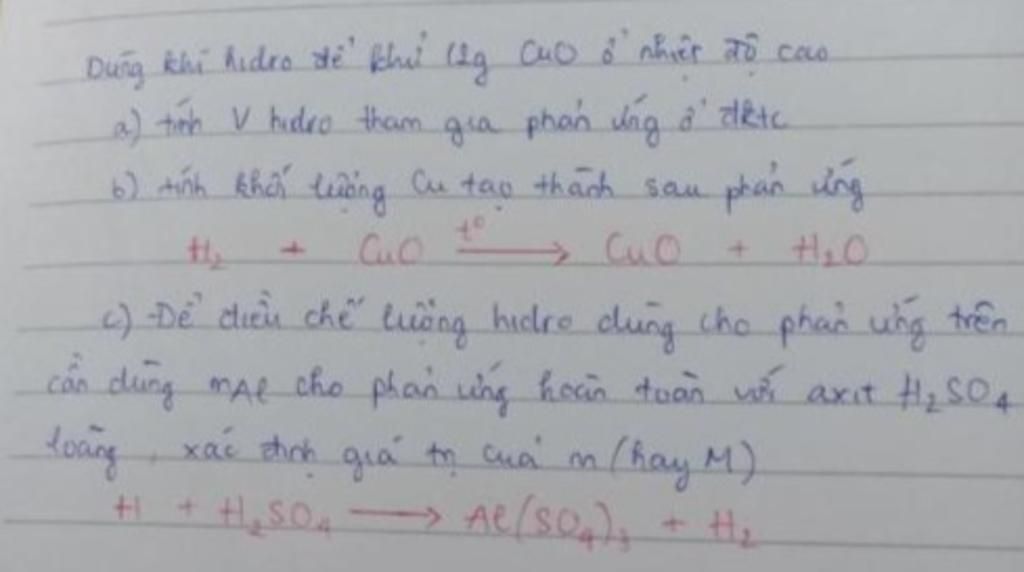 Dùng khí hiđro để khử 12g CuO ở nhiệt độ cao
a) tính V hidro tham gia phản ứng ở đktc
b) tính khối lượng Cu tạo thành sau phản ứng
H₂ + CuO t° → CuO + H₂O
c) Để điều chế lượng hidro dùng cho phản ứng trên
cần dùng mAl cho phản ứng hoàn toàn với axit H₂SO₄
loãng, xác định giá trị của m (hay M)
H + H₂SO₄ → Al(SO₄)₃ + H₂